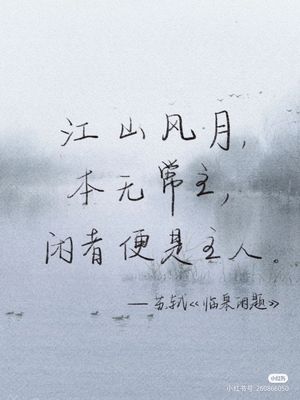 江山风月，
本无常主，
闲者便是主人。
—苏轼《临皋闲题》
小红书
小红书号: 269866050